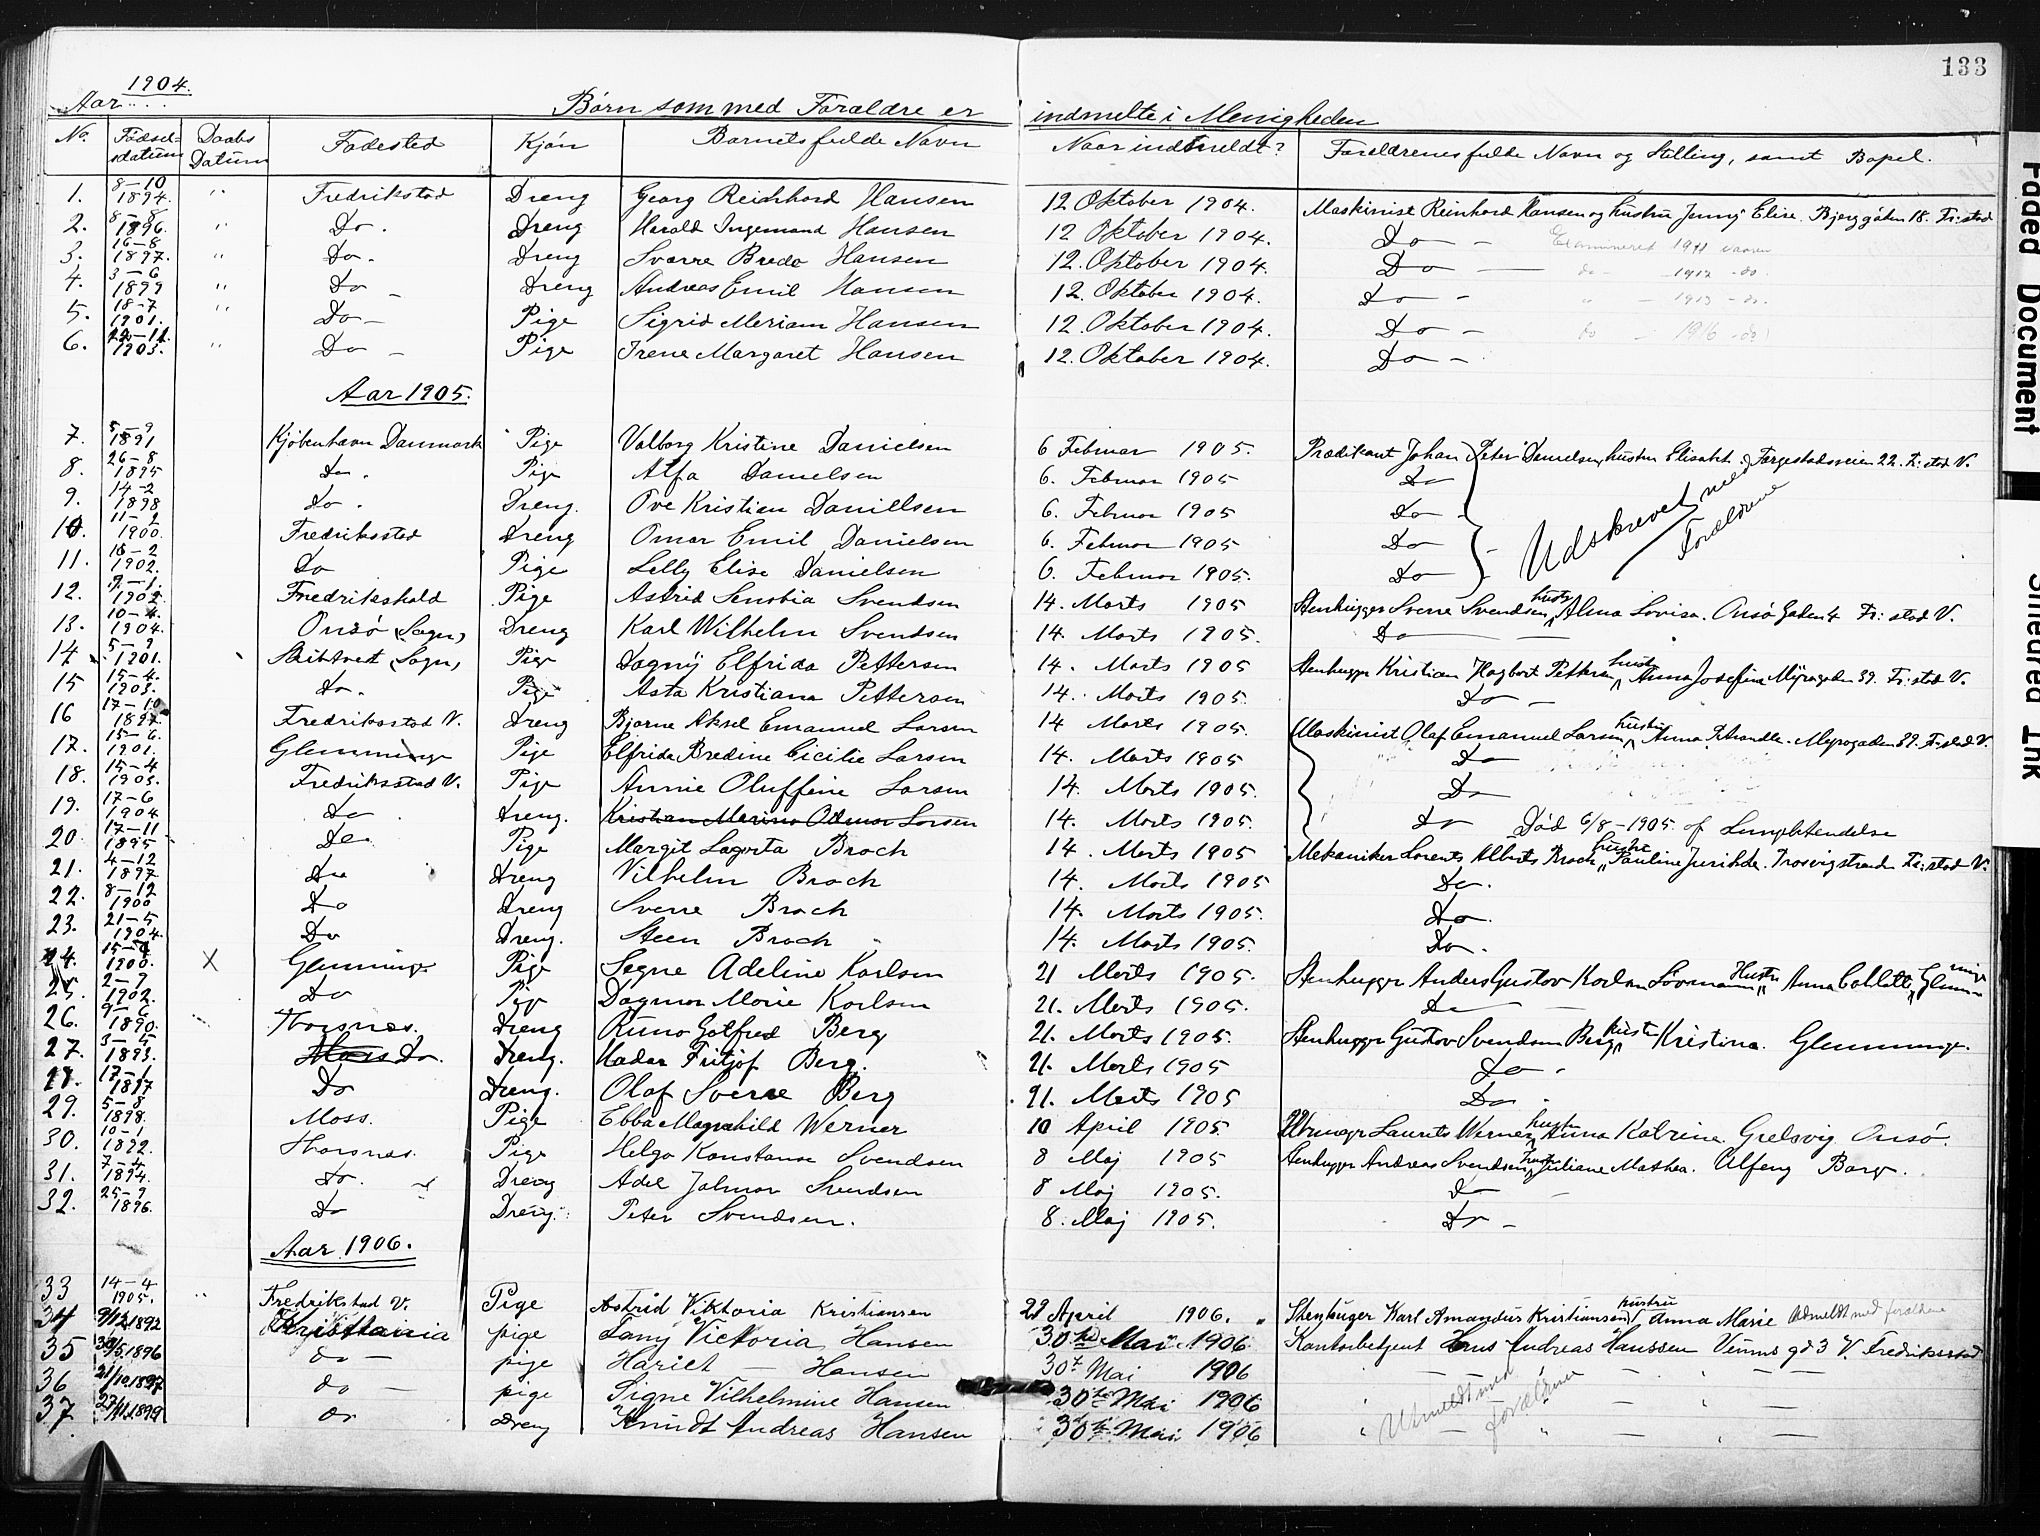 133
1904.
Aar
Børn som med Forældre er indmelte i Menigheden
No. Fødsel-sdatum Daabs Datum Fødested Kjøn Barnets fulde Navn Naar indmeldt? Forældrenes fulde Navn og Stilling, samt Bopel.
1. 8-10 1894. " Fredrikstad Dreng Georg Reinhard Hansen 12 Oktober 1904. Maskinist Reinhard Hansen og hustru Jenny Elise. Bjerggaden 18. Fr:stad
2. 8-8 1896. " Do. Dreng Harald Ingemand Hansen 12 Oktober 1904. Do — Examineret 1911 vaaren
3. 16-8 1897. " Do. Dreng Sverre Bredo Hansen 12. Oktober 1904. Do — do - 1912 - do.
4. 3-6 1899 " Do — Dreng Andreas Emil Hansen 12. Oktober 1904. Do — " - 1913 - do.
5. 18-7 1901. " Do — Pige Sigrid Meriam Hansen 12. Oktober 1904. Do — do - 1916 - do
6. 1903. " Do — Pige Irene Margaret Hansen 12. Oktober 1904. Do —
Aar 1905.
7. 5-9 1891 Kjøbenhavn Danmark Pige Valborg Kristine Danielsen 6 Februar 1905. Prædikant Johan Peter Danielsen, hustru Elisabet. Færgestadsveien 22. Fr:stad V.
8. 26-8 1895 Do. Pige Alfa Danielsen 6. Februar 1905 Do
9. 14-2 1898 Do. Dreng. Ove Kristian Daniellsen 6. Februar 1905 Do
10. 11-2 1900. Fredriksstad Dreng Omar Emil Danielsen 6. Februar 1905 Do
11. 16-2 1902. Do Pige Lelly Elise Danielsen 6. Februar 1905. Do
Udskrevet med Foraldrene
12. 9-1. 1902. Fredrikshald Pige Astrid Senobia Svendsen 14. Marts 1905 Stenhugger Sverre Svendsen, hustr Alma Lovisa. Onsø Gaden 4 Fr: stad V.
13. 10-4. 1904. Onsø (Sogn) Dreng Karl Wilhelm Svendsen 14. Marts 1905. Do —
14. 5-9 1901. Skibtvet (Sogn) Pige Dagny Elfrida Pettersen 14. Marts 1905 Stenhugger Kristian Hagbart Pettersen hustr Anna Josefine Myragaden 39. Fr: stad V.
15 15-4. 1903. Do. Pige Asta Kristiana Pettersen 14. Marts 1905. Do —
16 17-10 1897. Fredriksstad V. Dreng Bjarne Aksel Emanuel Larsen 14 Marts 1905. Maskinist Olaf Emanuel Larsen hustru Anna Myragaden 39. Fr.stad V.
17. 15-6. 1901. Glemminge Pige Elfrida Bredine Cicilie Larsen 14. Marts 1905 Do
18. 15-4 1903. Fredriksstad V. Pige Annie Oluffine Larsen 14. Marts 1905. Do
19. 17-6 1904 Do Dreng. Kristian Marino Larsen 14. Marts 1905. Do Død 6/8-1905. af Lungbetendelse
20. 17-11 1895 Do Pige Margit Lagerta Broch 14. Marts 1905 Mekaniker Lorents Alberts Broch, hustru Pauline Trosvigstrand Fr: stad V.
21. 4-12 1897 Do Dreng Vilhelm Broch 14. Marts 1905 Do.
22. 8-12 1900 Do Dreng Sverre Broch 14. Marts 1905. Do.
23. 21-5 1904. Do Dreng. Steen Broch 14. Marts 1905. Do.
24. 1900. X Glemminge Pige Segne Adeline Karlsen 21 Marts 1905. Stenhugger Anders Gustav Karlsen Hustr Anna Collette, Glemminge
25. 2-9 1902. Do Pige Dagmar Marie Karlsen 21. Marts 1905. Do —
26. 9-6 1890. Thorsnæs. Dreng Runo Gotfred Berg 21. Marts 1905. Stenhugger Gustav Svendsen Berg hustr Kristina. Glemminge.
27. 3-5 1893. Do. Dreng. Hadar Fritjof Berg. 21. Marts 1905 Do
28. 17-1 1897 Do Dreng. Olaf Sverre Berg 21. Marts 1905 Do
29. 5-8 1898. Moss. Pige Ebba Magnhild Werner 10 April 1905. Laurits Werner, hustru Anna Katrine Grelsvig Onsø.
30. 10-1 1892. Thorsnæs. Pige Helga Konstanse Svendsen 8 Maj 1905 Stenhugger Andreas Svendsen, hustr Juliane Mathea. Ulfeng Borge.
31. 7-4 1894. Do. Dreng Adel Jalmar Svendsen 8 Maj 1905. Do —
32. 25-9 1896. Do Dreng. Peter Svendsen. 8. Maj 1905. Do —
Aar 1906.
33 14-4 1905. " Fredrikstad V. Pige Astrid Viktoria Kristiansen 29 April 1906. Stenhuger Karl Amandus Kristiansen hustru Anna Marie Udmeldt med forældrene
34 1892 Kristiania pige Fany Victoria Hansen 30te Mai 1906 Kontorbetjent Hans Andreas Hanssen Venus gd 3 V. Fredriksstad
35 30/5 1896 do — pige Hariet — Hansen 30te Mai 1906
36 21/12 1897 do — pige Signe Vilhelmine Hansen 30te Mai 1906
37 1899 do Dreng Knudt Andreas Hansen 30te Mai 1906
Utmeldt med forældrene
Faded Document
Smeared Ink